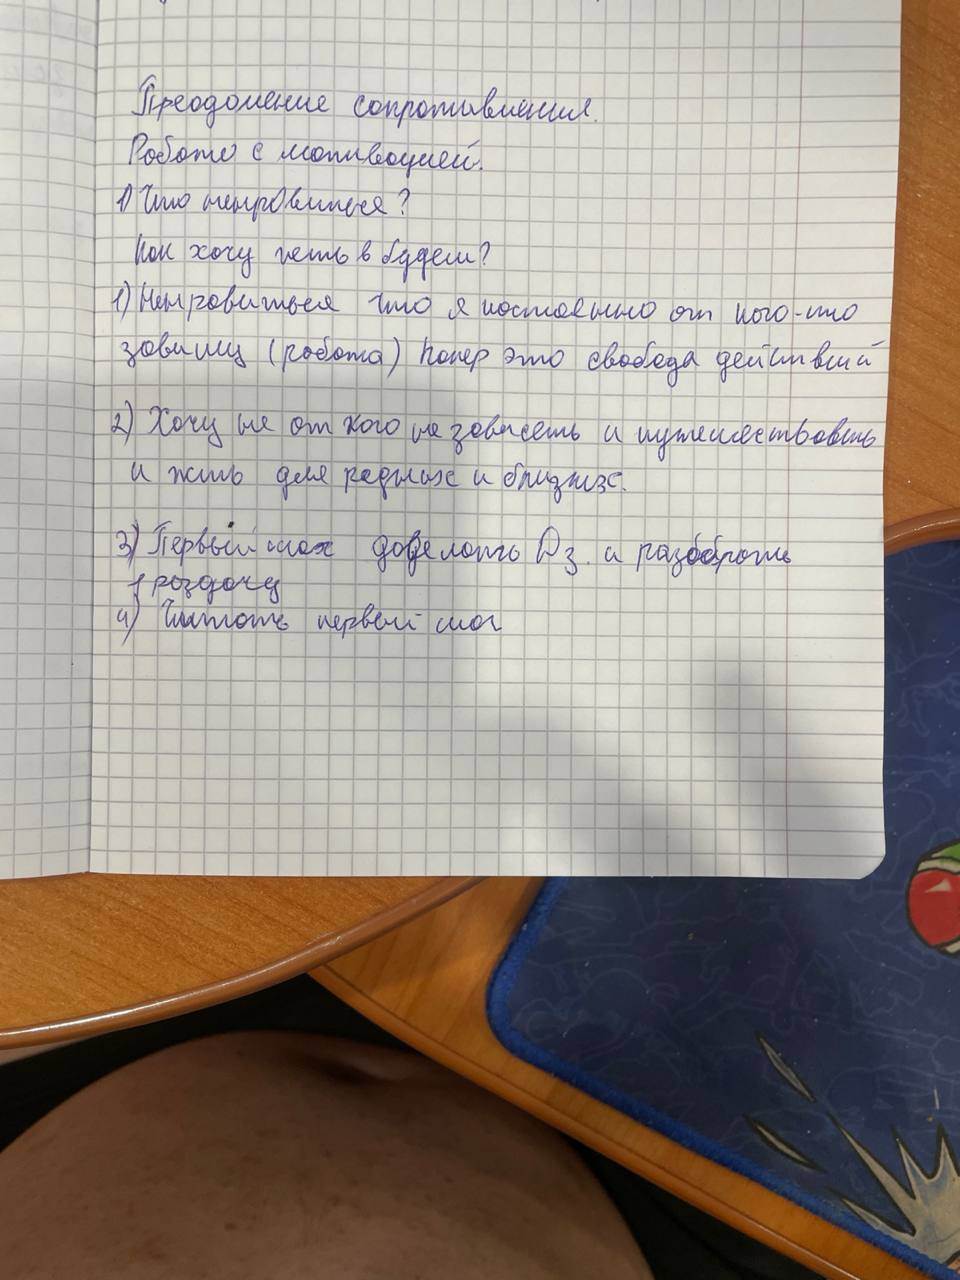 Преодоление сопротивления.
Работа с мотивацией.
1) Что ненравиться?
Как хочу жить в будем?
1) Ненравиться что я постоянно от кого-то
зависишу (работа) покер это свобода действий
2) Хочу не от кого не зависеть и путешествовать
и жить для родных и близких.
3) Первый шаг доделать Дз. и разобрать
1 раздачу
4) Читать первый шаг